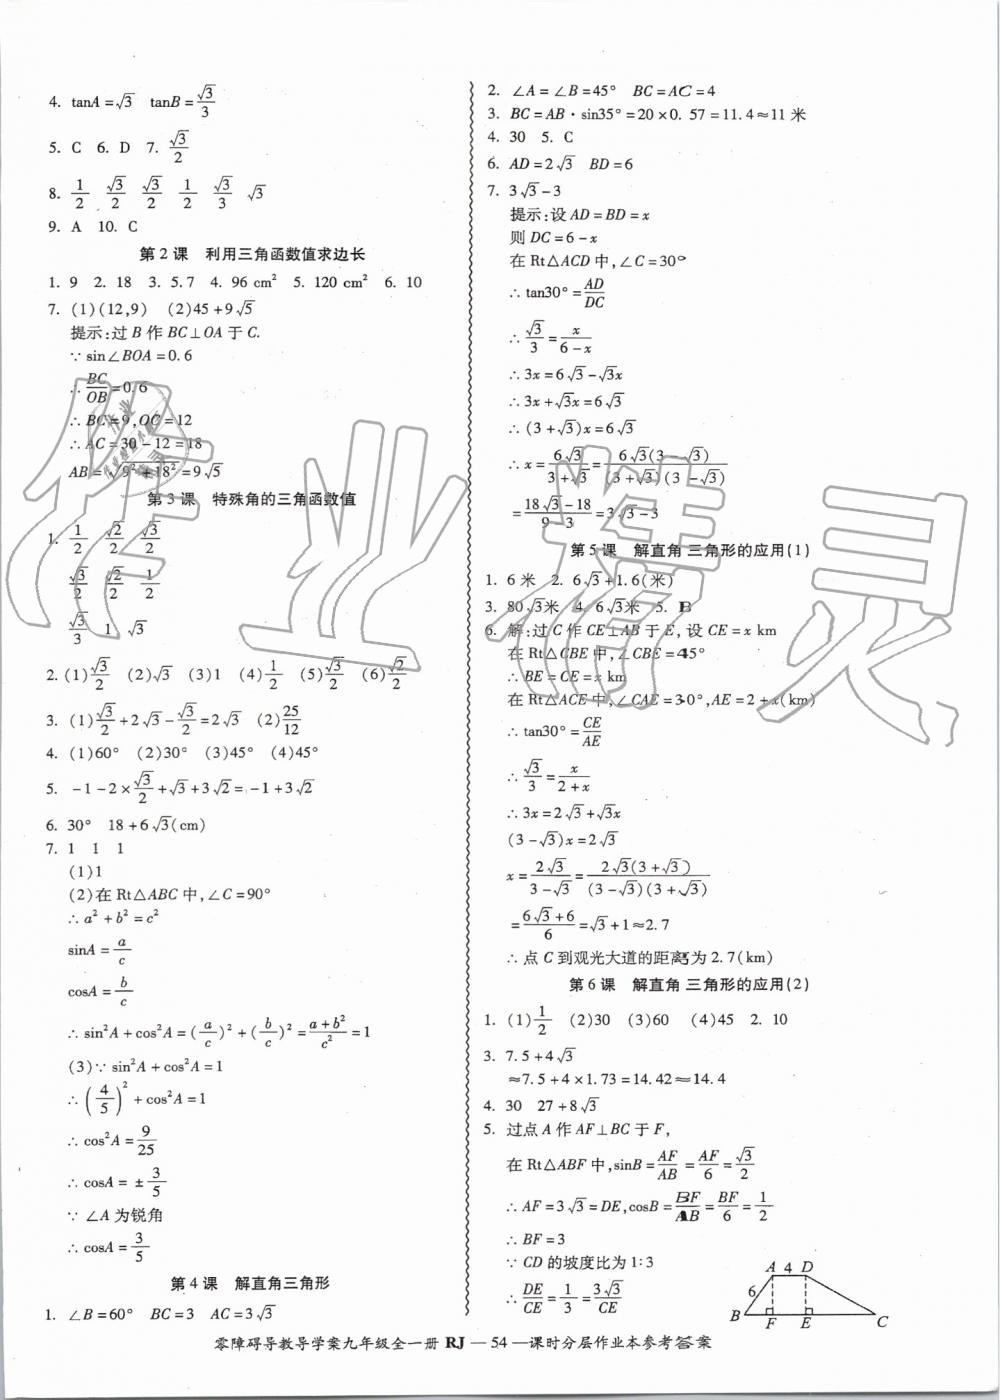 4. tanA=√3 tanB=√3/3
5. C 6. D 7. √3/2
8. 1/2 √3/2 √3/2 1/2 √3/3 √3
9. A 10. C
第2课 利用三角函数值求边长
1. 9 2. 18 3. 5.7 4. 96 cm² 5. 120 cm² 6. 10
7. (1)(12,9) (2)45+9√5
提示:过B作BC⊥OA于C.
∵sin∠BOA=0.6
∴BC/OB=0.6
∴BC=9,OC=12
∴AC=30-12=18
AB=√(9²+18²)=9√5
第3课 特殊角的三角函数值
1. 1/2 √2/2 √3/2
√3/2 √2/2 1/2
√3/3 1 √3
2. (1)√3/2 (2)√3 (3)1 (4)1/2 (5)√3/2 (6)√2/2
3. (1)√3/2+2√3-√3/2=2√3 (2)25/12
4. (1)60° (2)30° (3)45° (4)45°
5. -1-2×√3/2+√3+3√2=-1+3√2
6. 30° 18+6√3(cm)
7. 1 1 1
(1)1
(2)在Rt△ABC中,∠C=90°
∴a²+b²=c²
sinA=a/c
cosA=b/c
∴sin²A+cos²A=(a/c)²+(b/c)²=(a+b²)/c²=1
(3)∵sin²A+cos²A=1
∴(4/5)²+cos²A=1
∴cos²A=9/25
∴cosA=±3/5
∵∠A为锐角
∴cosA=3/5
第4课 解直角三角形
1. ∠B=60° BC=3 AC=3√3
2. ∠A=∠B=45° BC=AC=4
3. BC=AB·sin35°=20×0.57=11.4≈11米
4. 30 5. C
6. AD=2√3 BD=6
7. 3√3-3
提示:设AD=BD=x
则DC=6-x
在Rt△ACD中,∠C=30°
∴tan30°=AD/DC
∴√3/3=x/(6-x)
∴3x=6√3-√3x
∴3x+√3x=6√3
∴(3+√3)x=6√3
∴x=6√3/(3+√3)=6√3(3-√3)/(3+√3)(3-√3)
=(18√3-18)/(9-3)=3√3-3
第5课 解直角三角形的应用(1)
1. 6米 2. 6√3+1.6(米)
3. 80√3米 4. 6√3米 5. B
6. 解:过C作CE⊥AB于E,设CE=x km
在Rt△CBE中,∠CBE=45°
∴BE=CE=x km
在Rt△ACE中,∠CAE=30°,AE=2+x(km)
∴tan30°=CE/AE
∴√3/3=x/(2+x)
∴3x=2√3+√3x
(3-√3)x=2√3
x=2√3/(3-√3)=2√3(3+√3)/(3-√3)(3+√3)
=(6√3+6)/6=√3+1≈2.7
∴点C到观光大道的距离为2.7(km)
第6课 解直角三角形的应用(2)
1. (1)1/2 (2)30 (3)60 (4)45 2. 10
3. 7.5+4√3
≈7.5+4×1.73=14.42≈14.4
4. 30 27+8√3
5. 过点A作AF⊥BC于F,
在Rt△ABF中,sinB=AF/AB=AF/6=√3/2
∴AF=3√3=DE,cosB=BF/AB=BF/6=1/2
∴BF=3
∵CD的坡度比为1:3
∴DE/CE=1/3=3√3/CE
A 4 D
6
B F E C
零障碍导教导学案九年级全一册 RJ — 54 —课时分层作业本参考答案
作业精灵